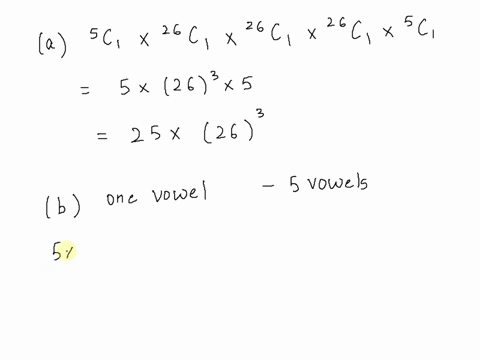 (a) ⁵C₁ × ²⁶C₁ × ²⁶C₁ × ²⁶C₁ × ⁵C₁
= 5 × (26)³ × 5
= 25 × (26)³
(b) one vowel - 5 vowels
5×